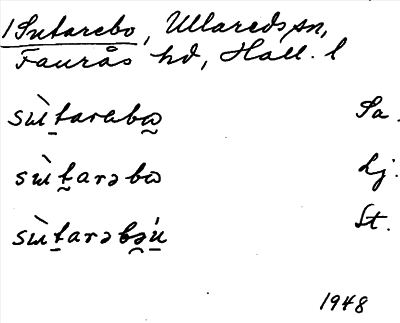 1 Sutarebo, Ullareds sn,
Faurås hd, Hall. l
sɯ̀t̠arəbɷ̰ Sa.
sɯ̀t̰arəbɷ Lj.
sɯ̀t̠arəbə̰ú̠ St.
1948